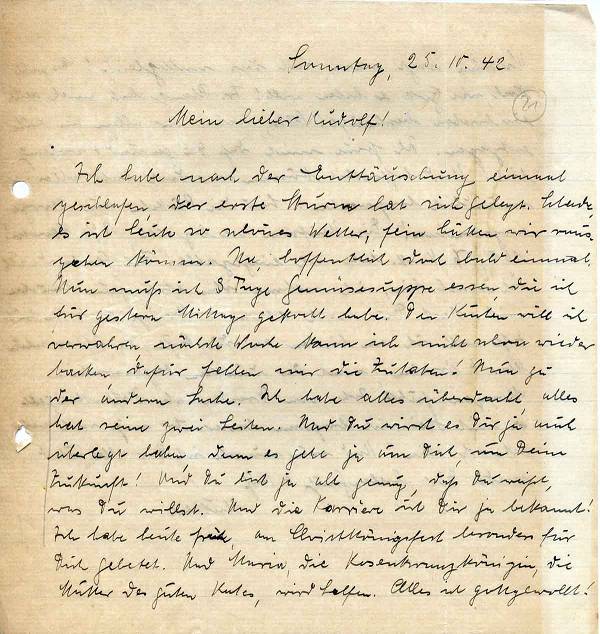 Sonntag, 25. 10. 42
21
Mein lieber Rudolf!
Ich habe nach der Enttäuschung einmal
geschlafen, der erste Sturm hat sich gelegt. Schade,
es ist heute so schönes Wetter, fein hätten wir raus-
gehen können. Na, hoffentlich doch bald einmal.
Nun muß ich 3 Tage Gemüsesuppe essen, die ich
für gestern Mittag gekocht habe. Den Kuchen will ich
verwahren, nächste Woche kann ich nicht schon wieder
backen, dafür fehlen mir die Zutaten! Nun zu
der andern Sache. Ich habe alles überdacht, alles
hat seine zwei Seiten. Und Du wirst es Dir ja auch
überlegt haben, denn es geht ja um Dich, um Deine
Zukunft! Und Du bist ja alt genug, daß Du weißt,
was Du willst. Und die Karriere ist Dir ja bekannt!
Ich habe heute früh, am Christkönigsfest besonders für
Dich gebetet. Und Maria, die Rosenkranzkönigin, die
Mutter des guten Rates, wird helfen. Alles ist gottgewollt!